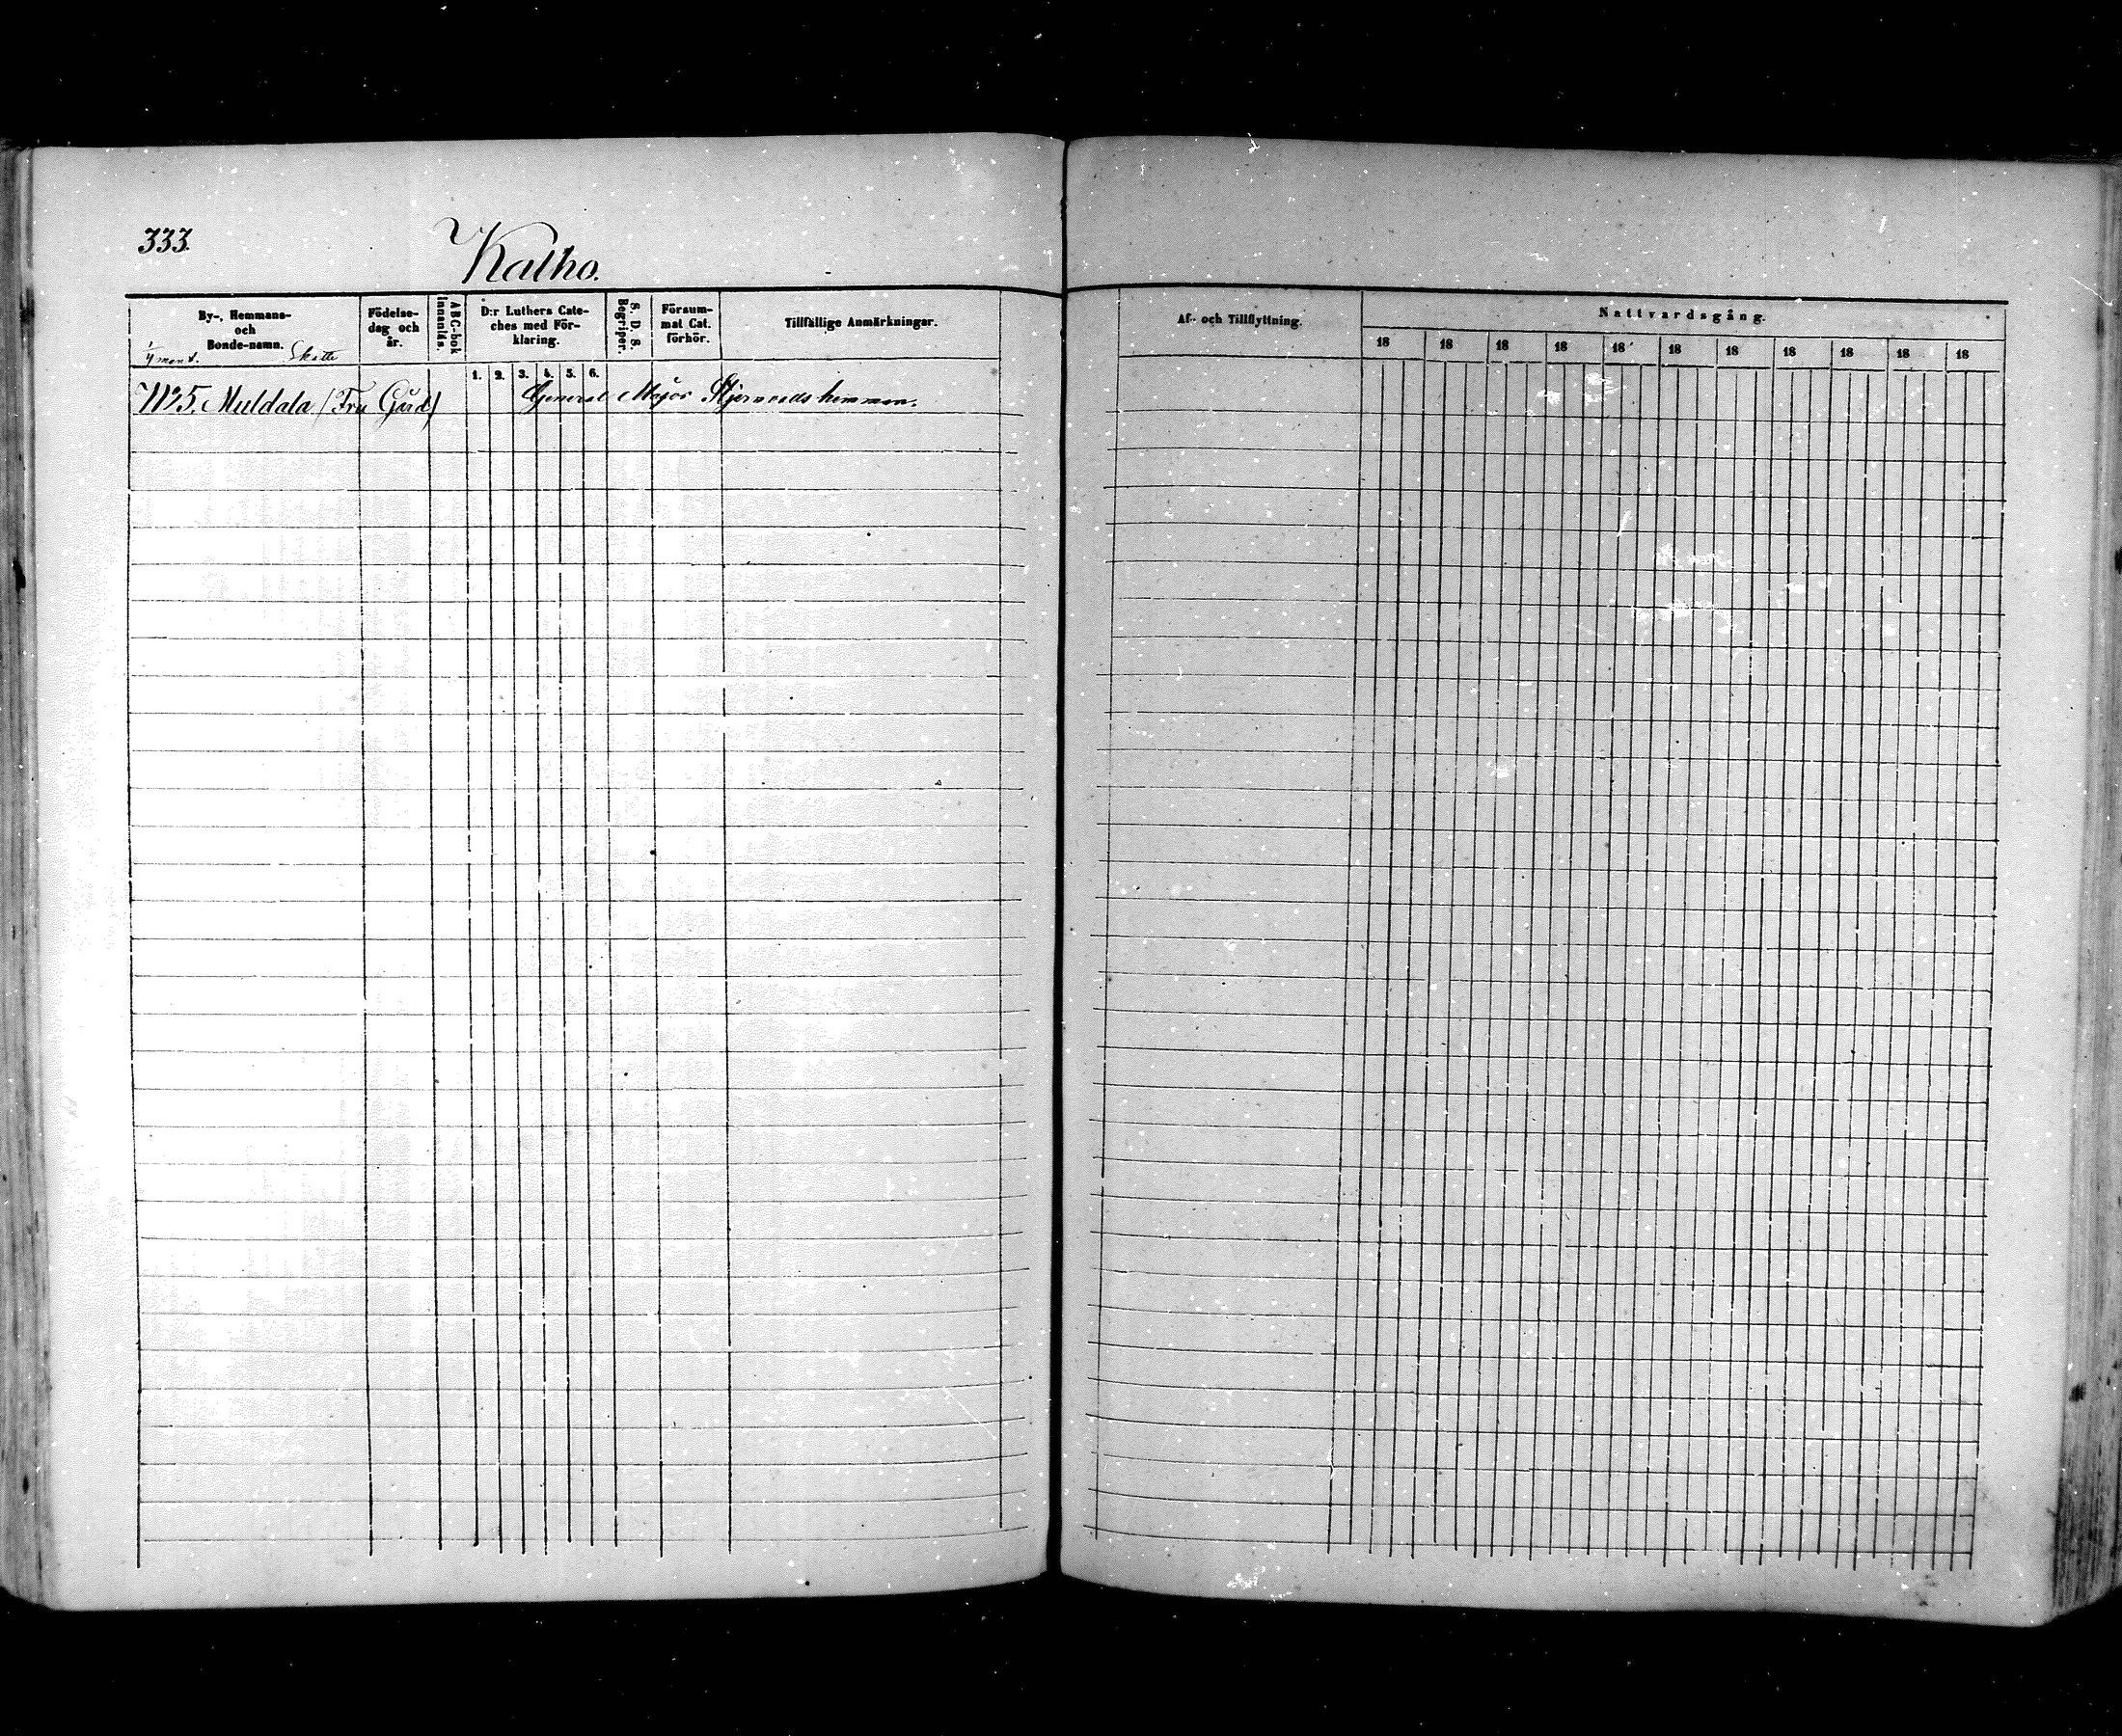 333.
Kalho.
By-, Hemmans- och Bonde-namn.
Födelse-dag och år.
ABC-bok Innanläs.
D:r Luthers Cate-ches med För-klaring.
S. D. S. Begriper.
Försum-mat Cat. förhör.
Tillfällige Anmärkningar.
Af- och Tillflyttning.
Nattvardsgång.
18 18 18 18 18 18 18 18 18 18 18
mant. Skatte
1. 2. 3. 4. 5. 6.
N:o 5. Muldala (Fru Gård) General Major Stjernvals hemman.